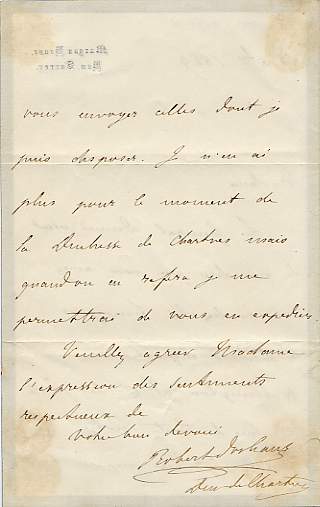 vous envoyer celles dont je
puis disposer. Je n'en ai
plus pour le moment de
la Duchesse de Chartres mais
quand on en refera je me
permettrai de vous en expédier
Veuillez agréer Madame
l'expression des sentiments
respectueux de
Votre bien dévoué
Robert d'orleans
Duc de Chartres